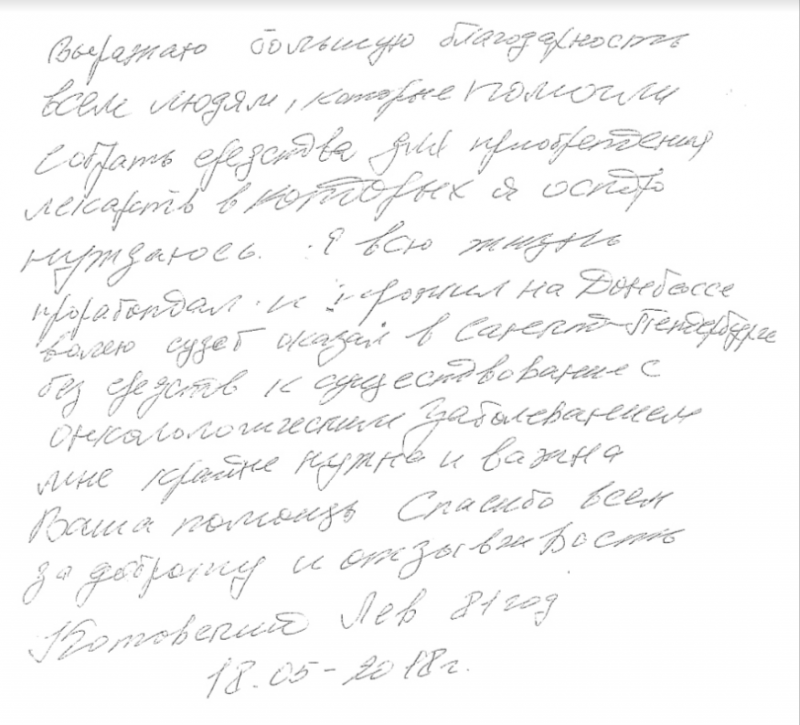 Выражаю большую благодарность
всем людям, которые помогли
собрать средства для приобретения
лекарств в которых я остро
нуждаюсь. Я всю жизнь
проработал и прожил на Донбассе
волею судеб оказался в Санкт-Петербурге
без средств к существованию с
онкологическим заболеванием
мне крайне нужна и важна
Ваша помощь Спасибо всем
за доброту и отзывчивость
Котовский Лев 81 год
18.05-2018г.